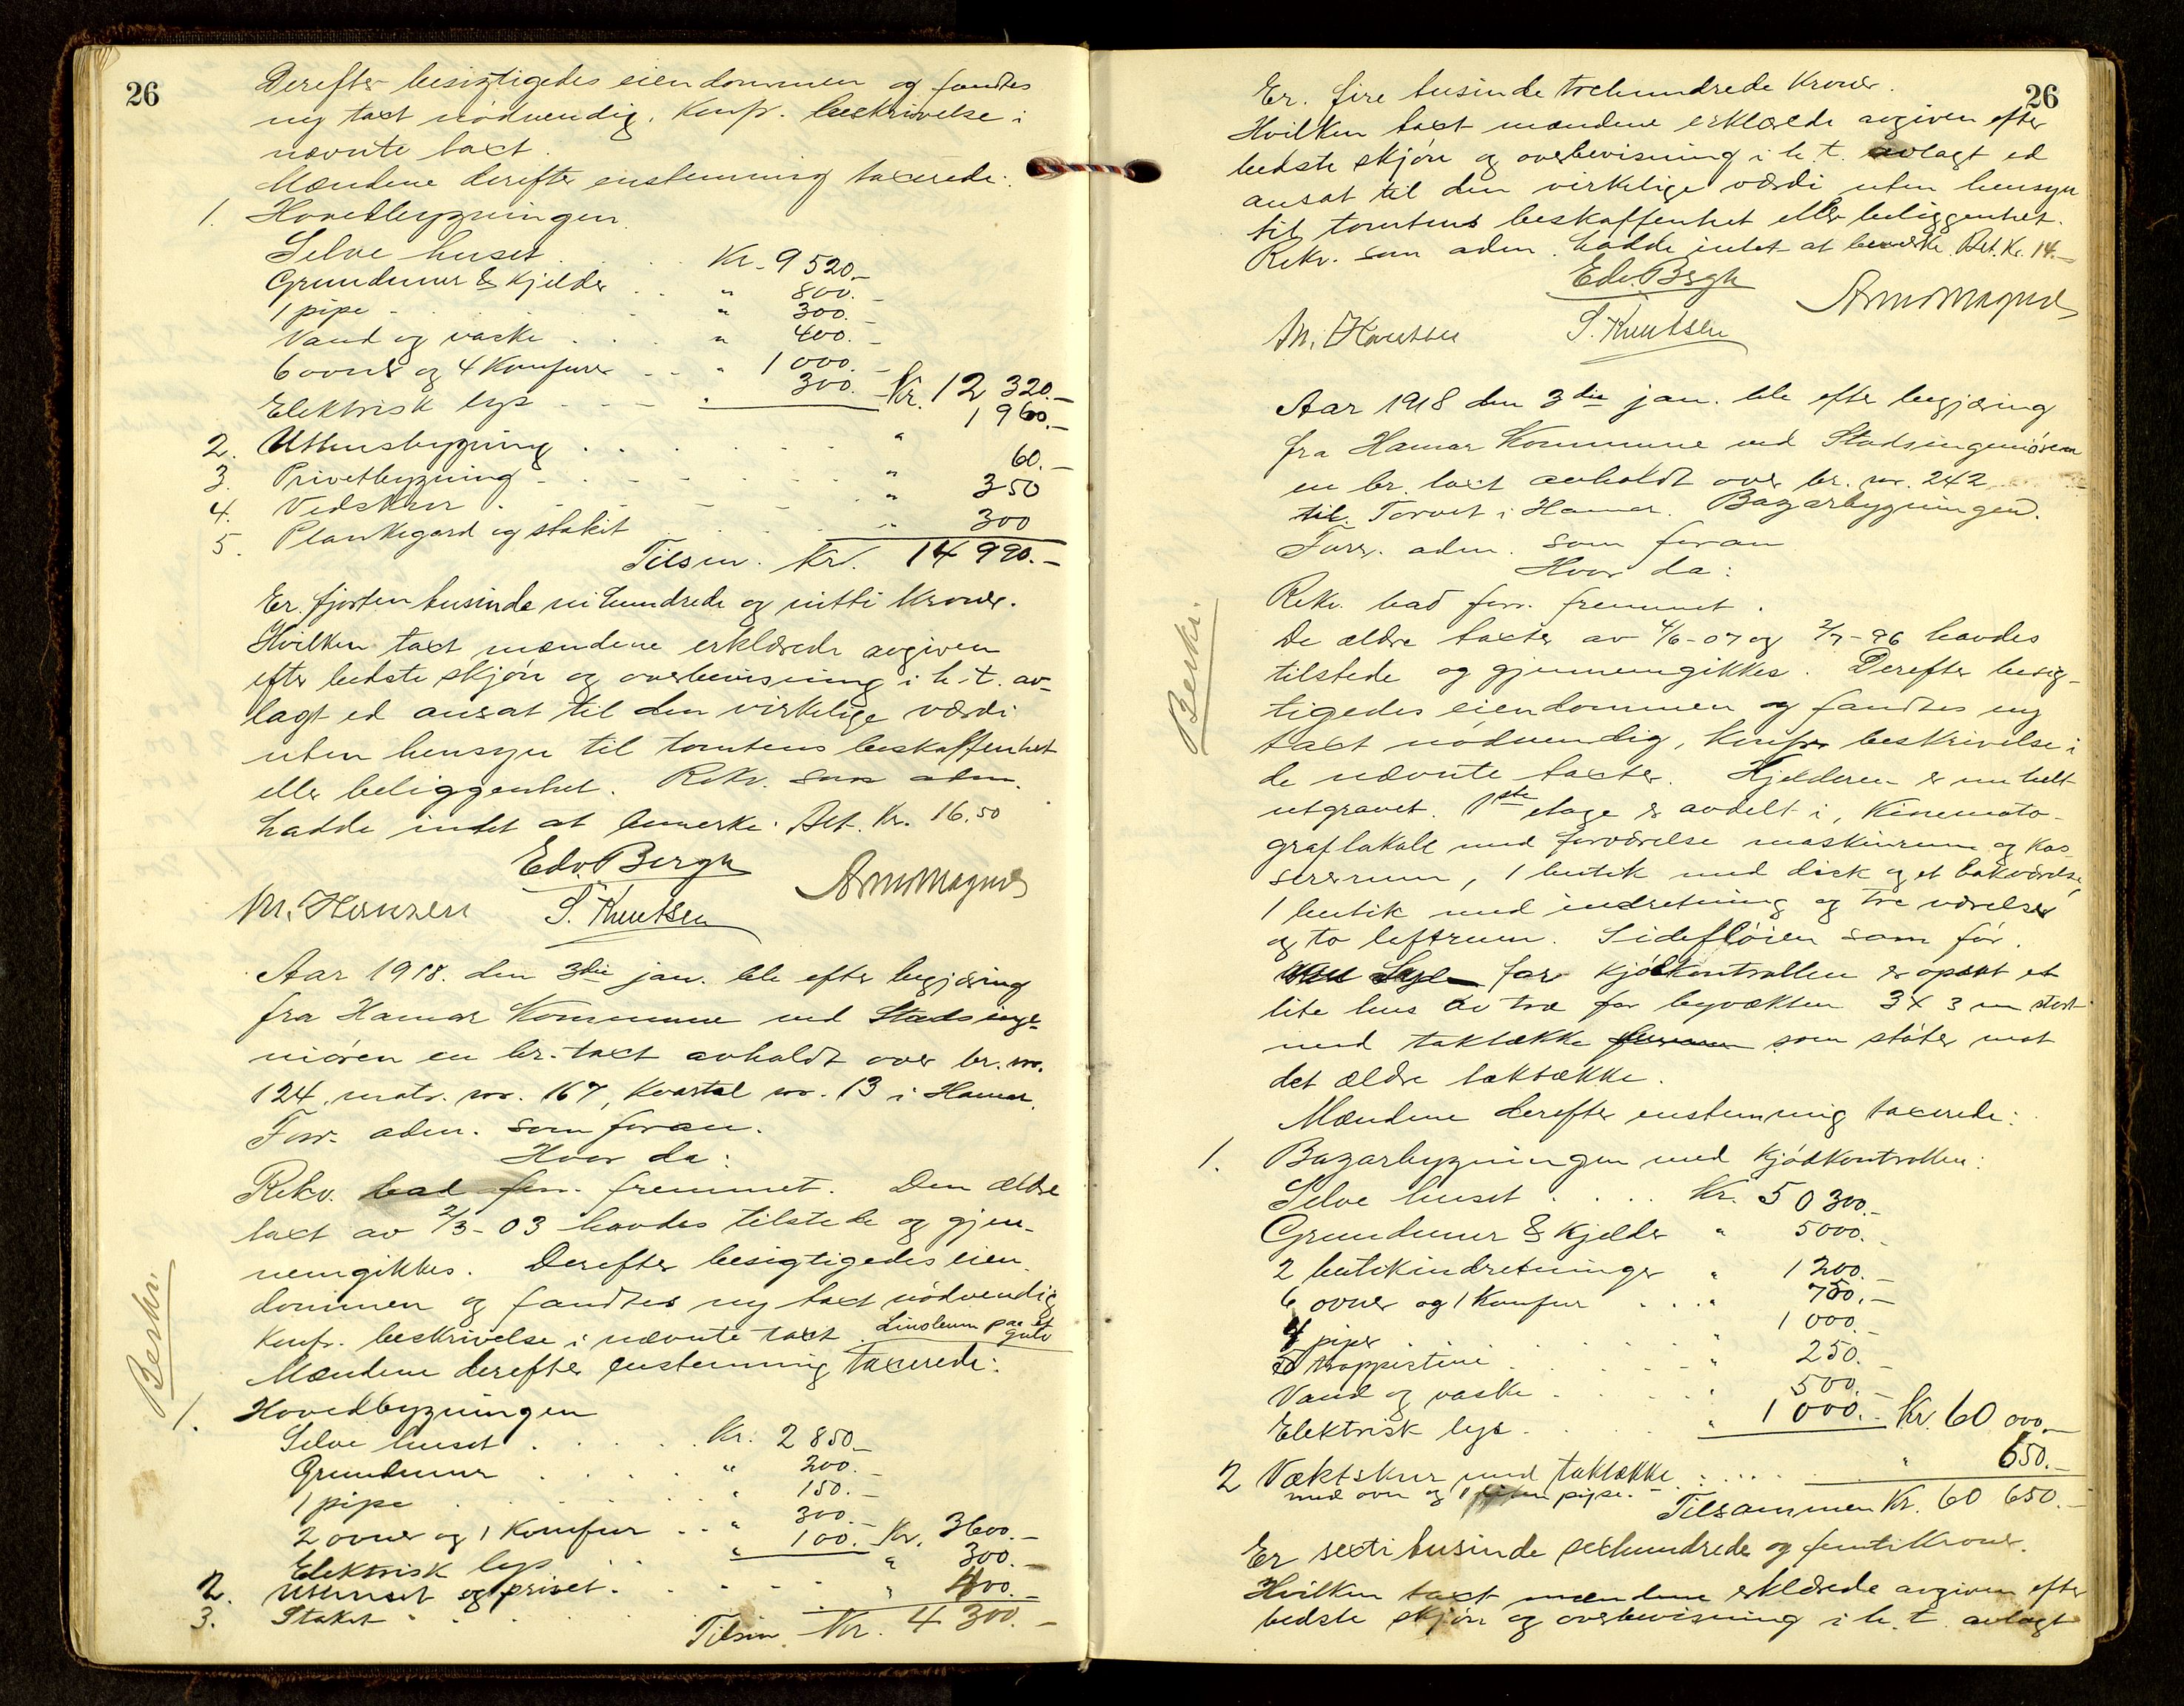 26
Derefter besigtigedes eiendommen og fandtes
ny taxt nödvendig. Konfr. beskrivelse i
nævnte taxt.
Mændene derefter enstemmig taxerede:
1. Hovedbygningen
Selve huset . . . Kr. 9 520.-
Grundmur & Kjelder . . " 800.-
1 pipe - . . . " 300.-
Vand og vaske . . . " 400.-
6 ovner og 4 Komfurer . . " 1 000.-
Elektrisk lys . . . " 300.- Kr. 12 320.-
2. Uthusbygning . . . " 1 960.-
3. Privetbygning . . . " 60.-
4. Vedskur . . . " 350
5. Plankegard og stakit . . . " 300
Tilsm. Kr. 14 990.-
Er. fjorten tusinde nihundrede og nitti Kroner.
Hvilken taxt mændene erklærede avgiven
efter bedste skjön og overbevisning i h.t. av-
lagt ed ansat til den virkelige værdi
uten hensyn til tomtens beskaffenhet
eller beliggenhet. Rekv. som adm.
hadde intet at bemerke. Bet. Kr. 16.50
Edv. Bergh
M. Hansen S. Knutsen
Aar 1918. den 3die jan. ble efter begjæring
fra Hamar Kommune ved Stadsinge-
niören en br. taxt avholdt over br. no.
124, matr. no. 167, Kvartal no. 13 i Hamar.
Forr. adm. som foran.
Hvor da:
Rekv. bad forr. fremmet. Den ældre
taxt av 2/3-03 havdes tilstede og gjen-
nemgikkes. Derefter besigtigedes eien-
dommen og fandtes ny taxt nödvendig
Konfr. beskrivelse i nævnte taxt. Linoleum paa et gulv
Mændene derefter enstemmig taxerede:
Beskr.
1. Hovedbygningen
Selve huset . . . Kr. 2 850.-
Grundmur . . . " 200.-
1 pipe . . . " 150.-
2 ovner og 1 Komfur . . " 300.-
Elektrisk lys . . " 100. Kr. 3600.-
2. Uthuset og privet . . . " 300.-
3. Staket . . . " 400.-
Tilsm. Kr. 4 300.-
26
Er. fire tusinde trehundrede Kroner.
Hvilken taxt mændene erklærede avgiven efter
bedste skjön og overbevisning i h.t. avlagt ed
ansat til den virkelige værdi uten hensyn
til tomtens beskaffenhet eller beliggenhet.
Rekv. som adm. hadde intet at bemerke. Bet. Kr. 14.-
Edv. Bergh
M. Hansen S. Knutsen
Aar 1918 den 3die jan. ble efter begjæring
fra Hamar Kommune ved Stadsingeniören
en br. taxt avholdt over br. no. 242
til Torvet i Hamar. Bazarbygningen.
Forr. adm. som foran
Hvor da:
Rekv. bad forr. fremmet.
Beskr.
De ældre taxter av 4/6-07 og 2/7-96 havdes
tilstede og gjennemgikkes. Derefter besig-
tigedes eiendommen og fandtes ny
taxt nödvendig, Konfr. beskrivelse i
de nævnte taxter. Kjelderen er nu helt
utgravet. 1ste etage er avdelt i, Kinemato-
graflokale med forværelse maskinrum og kas-
sererrum, 1 butik med disk og et bakværelse,
1 butik med indretning og tre værelser
og to loftrum. Sideflöien som för.
for kjödkontrollen er opsat et
lite hus av træ for byvækten 3 x 3 m stort
med taktække som stöter mot
det ældre taktække.
Mændene derefter enstemmig taxerede:
1. Bazarbygningen med Kjödkontrollen:
Selve huset . . . Kr. 50 300.-
Grundmur & Kjelder " 5000.-
2 butikindretninger " 1 200.-
6 ovner og 1 Komfur . . " 750.-
4 piper . . . " 1 000.-
5 trappistini . . . " 250.-
Vand og vaske . . . " 500.-
Elektrisk lys . . . " 1 000.- Kr. 60 000.-
2 Væktskur med taktække . . . " 650.-
med ovn og 1 liten pipe. -
Tilsammen Kr. 60 650.-
Er sexti tusinde sexhundrede og femti Kroner.
Hvilken taxt mændene erklærede avgiven efter
bedste skjön og overbevisning i h.t. avlagt